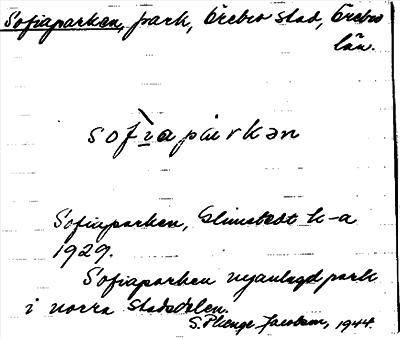 Sofiaparken, park, Örebro stad, Örebro
län.
sofìaparkən
Sofiaparken, Elmstedt k-a
1929.
Sofiaparken nyanlagd park
i norra stadsdelen.
S. Plenge Jacobson, 1944.